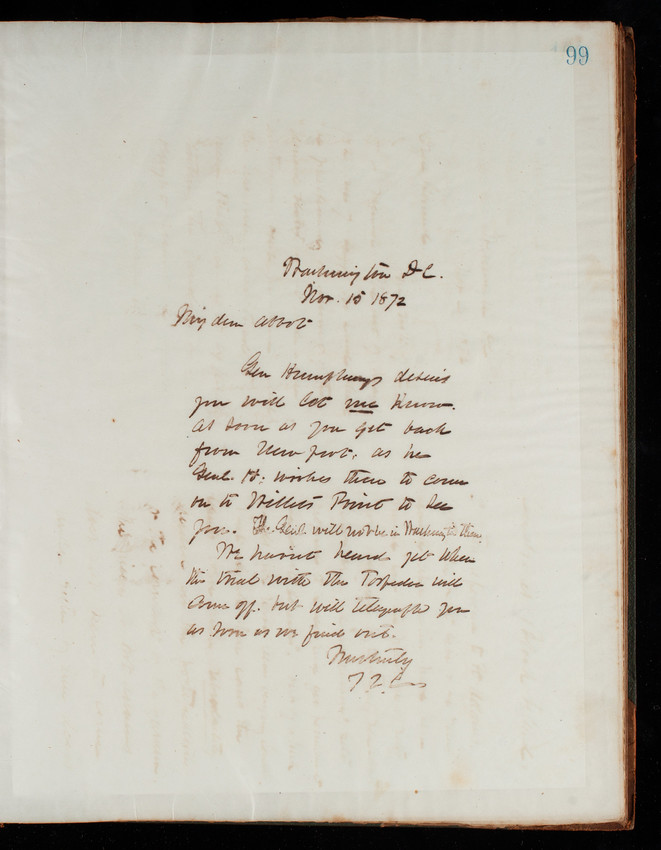 99
Washington D.C.
Nov. 15 1872
My dear Abbot
Gen Humphreys desires
you will let me know
as soon as you get back
from Newport, as he
Genl. H; wishes then to come
on to Willets Point to see
you. The Genl. will not be in Washington then.
We havint heard yet when
the trial with the Torpedo will
come off. but will telegraph you
as soon as we find out.